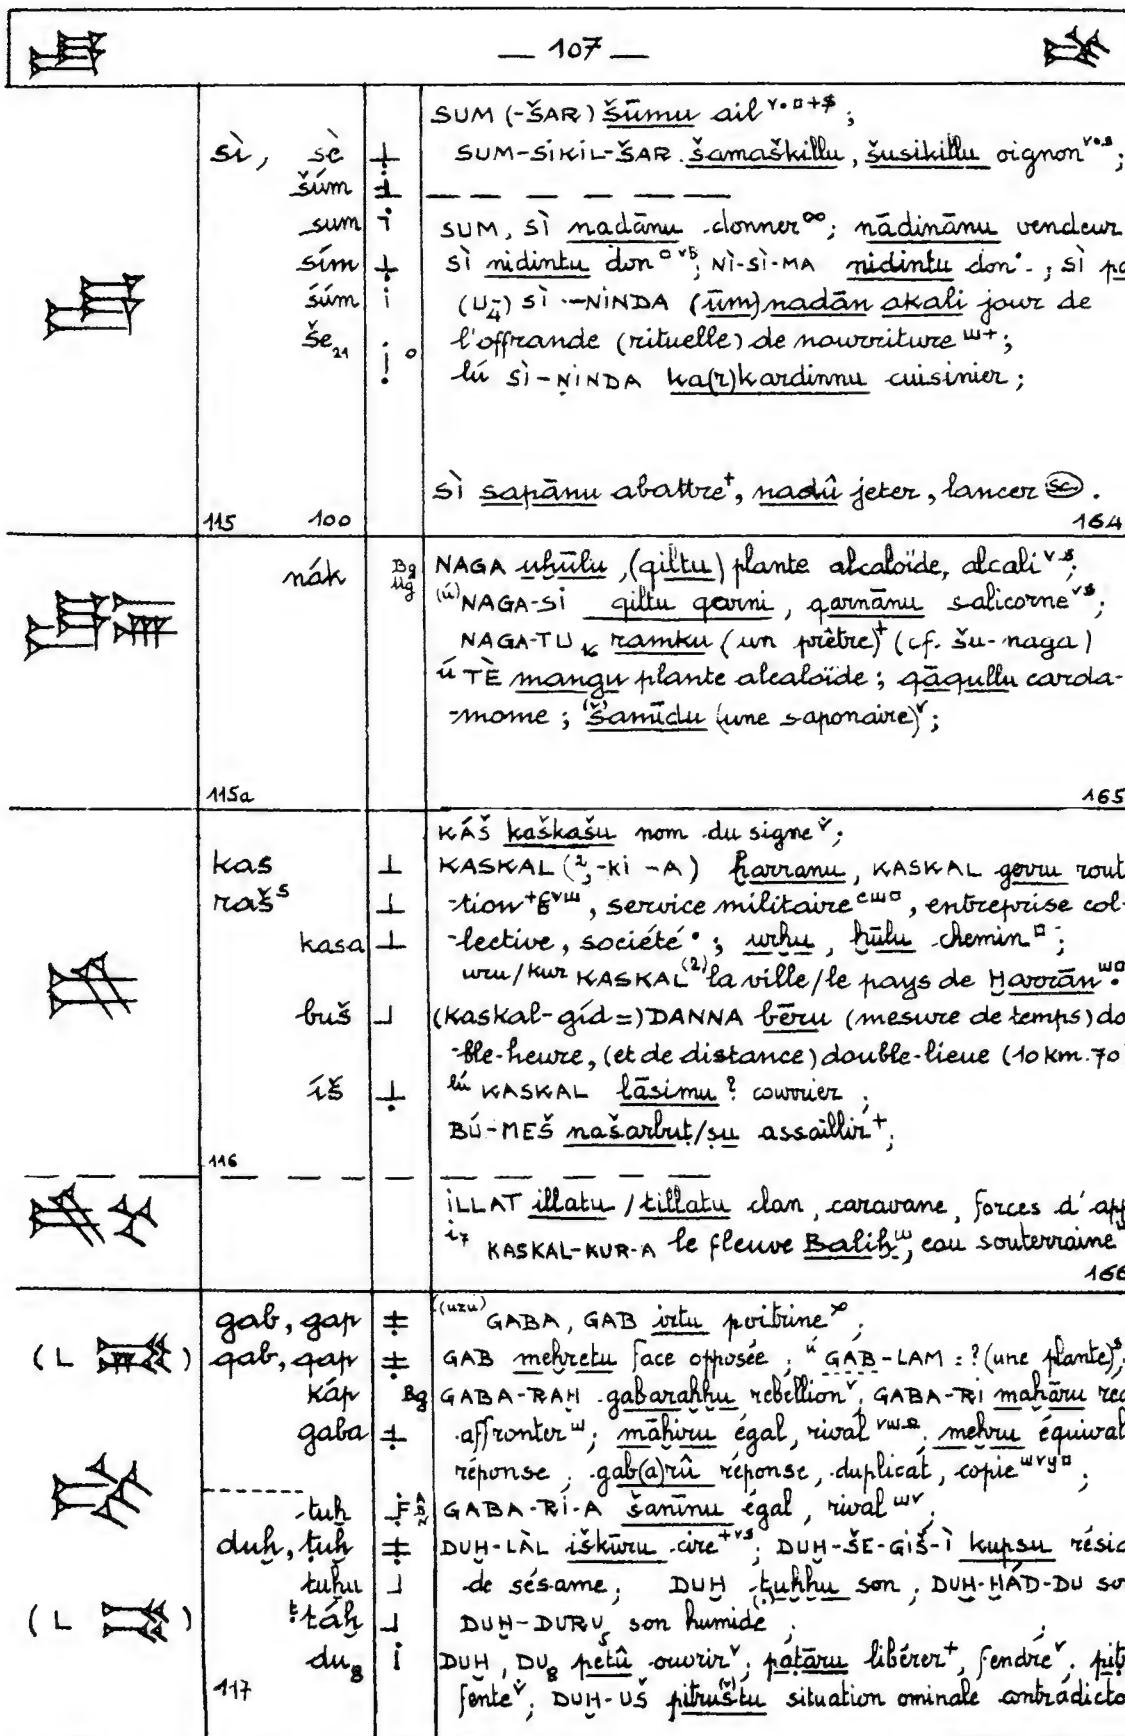 — 107 —
SUM (-ŠAR) šūmu ail ;
sì, sè SUM-SIKIL-ŠAR šamaškillu, šusikillu oignon ;
šúm
sum SUM, SÌ nadānu donner ∞; nādinānu vendeur
sím SÌ nidintu don ; NÌ-SÌ-MA nidintu don ; SÌ
šúm (U₄) SÌ-NINDA (ūm) nadān akali jour de
še₂₁ l'offrande (rituelle) de nourriture ;
lú SÌ-NINDA ka(r)kardinnu cuisinier ;
SÌ sapānu abattre⁺, nadû jeter, lancer .
115 100 164
nák Bg Ug NAGA uḫūlu, (qiltu) plante alcaloïde, alcali ;
(ú) NAGA-SI qiltu qarni, qarnānu salicorne ;
NAGA-TU₅ ramku (un prêtre)⁺ (cf. šu-naga)
ú TÈ mangu plante alcaloïde ; qāqullu carda-
-mome ; (š)samīdu (une saponaire)ᵛ ;
115a 165
KÁŠ kaškašu nom du signeᵛ ;
kas KASKAL (², -KI -A) ḫarranu, KASKAL gerru rout
raš⁵ -tion , service militaire , entreprise col-
kasa -lective, société ; urḫu, ḫūlu chemin ;
uru/kur KASKAL⁽²⁾ la ville/le pays de Ḫarrān .
buš (kaskal-gíd =) DANNA bēru (mesure de temps) do
-ble-heure, (et de distance) double-lieue (10 km. 70
íš lú KASKAL lāsimu ? courrier ;
BÚ-MEŠ našarbuṭ/ṣu assaillir⁺ ;
116
ILLAT illatu / tillatu clan, caravane, forces d'app
i₇ KASKAL-KUR-A le fleuve Baliḫ , eau souterraine
166
gab, gap ((uzu) GABA, GAB irtu poitrine ;
(L ) qab, qap GAB meḫretu face opposée ; ú GÁB-LAM : ? (une plante) ;
káp Bg GABA-RAḪ gabaraḫḫu rebellionᵛ, GABA-RI maḫāru
gaba affronter ; māḫiru égal, rival ; meḫru équival
réponse ; gab(a)rû réponse, duplicat, copie ;
tuḫ GABA-RI-A šanīnu égal, rival ;
duḫ, ṭuḫ DUḪ-LÀL iškūru cire ; DUḪ-ŠE-GIŠ-Ì kupsu résid
tuḫu de sésame ; DUḪ tuḫḫu son ; DUḪ-ḪÁD-DU so
(L ) táḫ DUḪ-DURU₅ son humide ;
du₈ DUḪ, DU₈ petû ouvrirᵛ ; paṭāru libérer⁺, fendreᵛ ; piṭ
117 fenteᵛ ; DUḪ-UŠ pitruštu situation ominale contradicto